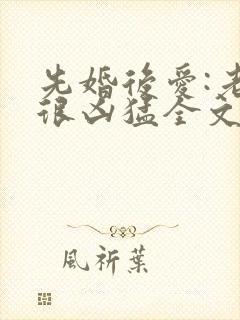 先婚後愛:老
很凶猛全文
風祈葉